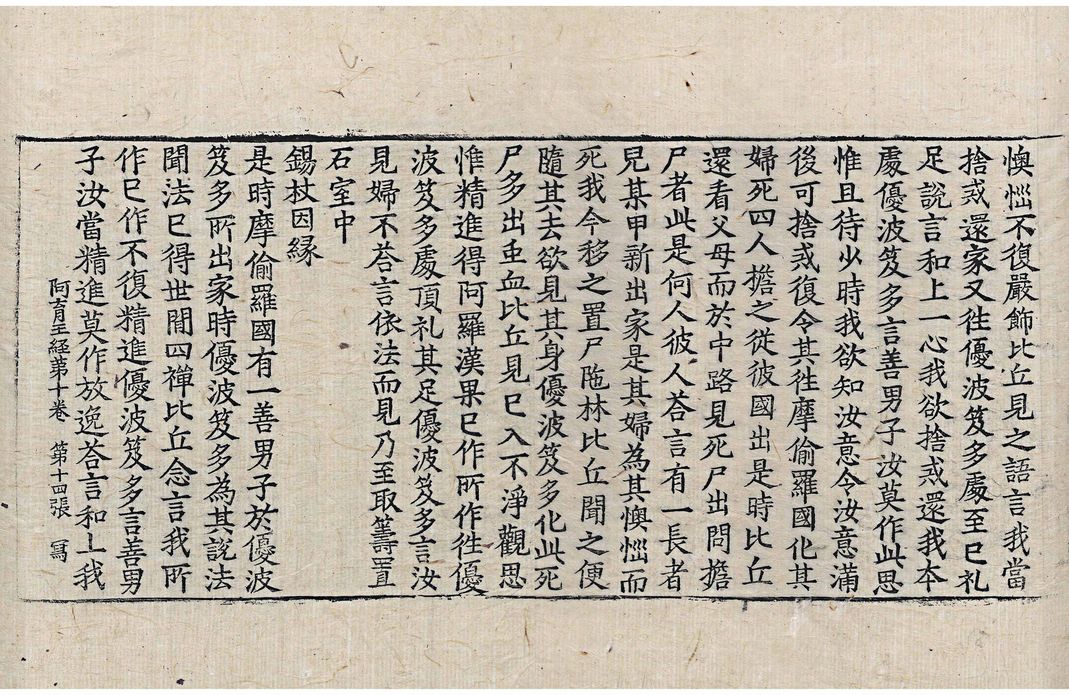 懊惱不復嚴飾比丘見之語言我當
捨戒還家又徃優波笈多處至巳礼
足說言和上一心我欲捨戒還我夲
處優波笈多言善男子汝莫作此思
惟且待少時我欲知汝意令汝意滿
後可捨戒復令其徃摩偷羅國化其
婦死四人擔之從彼國出是時比丘
還看父母而於中路見死尸出問擔
尸者此是何人彼人荅言有一長者
兒某甲新出家是其婦為其懊惱而
死我今移之置尸陁林比丘聞之便
隨其去欲見其身優波笈多化此死
尸多出䖝血比丘見巳入不淨觀思
惟精進得阿羅漢果巳作所作徃優
波笈多處頂礼其足優波笈多言汝
見婦不荅言依法而見乃至取籌置
石室中
錫杖因縁
是時摩偷羅國有一善男子於優波
笈多所出家時優波笈多為其說法
聞法巳得世間四禪比丘念言我所
作巳作不復精進優波笈多言善男
子汝當精進莫作放逸荅言和上我
阿育王經第十卷 第十四張 冩